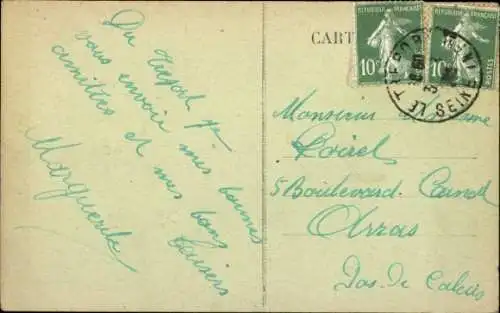 Du Tréport je
vous envoie mes bonnes
amitiées et mes bons
baisers
Marguerite
CART
REPUBLIQUE FRANÇAISE
10c
REPUBLIQUE FRANÇAISE
10c
POSTES
LE TREPORT
SEINE
Monsieur Madame
Poiret
5 Boulevard Carnot
Arras
Pas-de-Calais